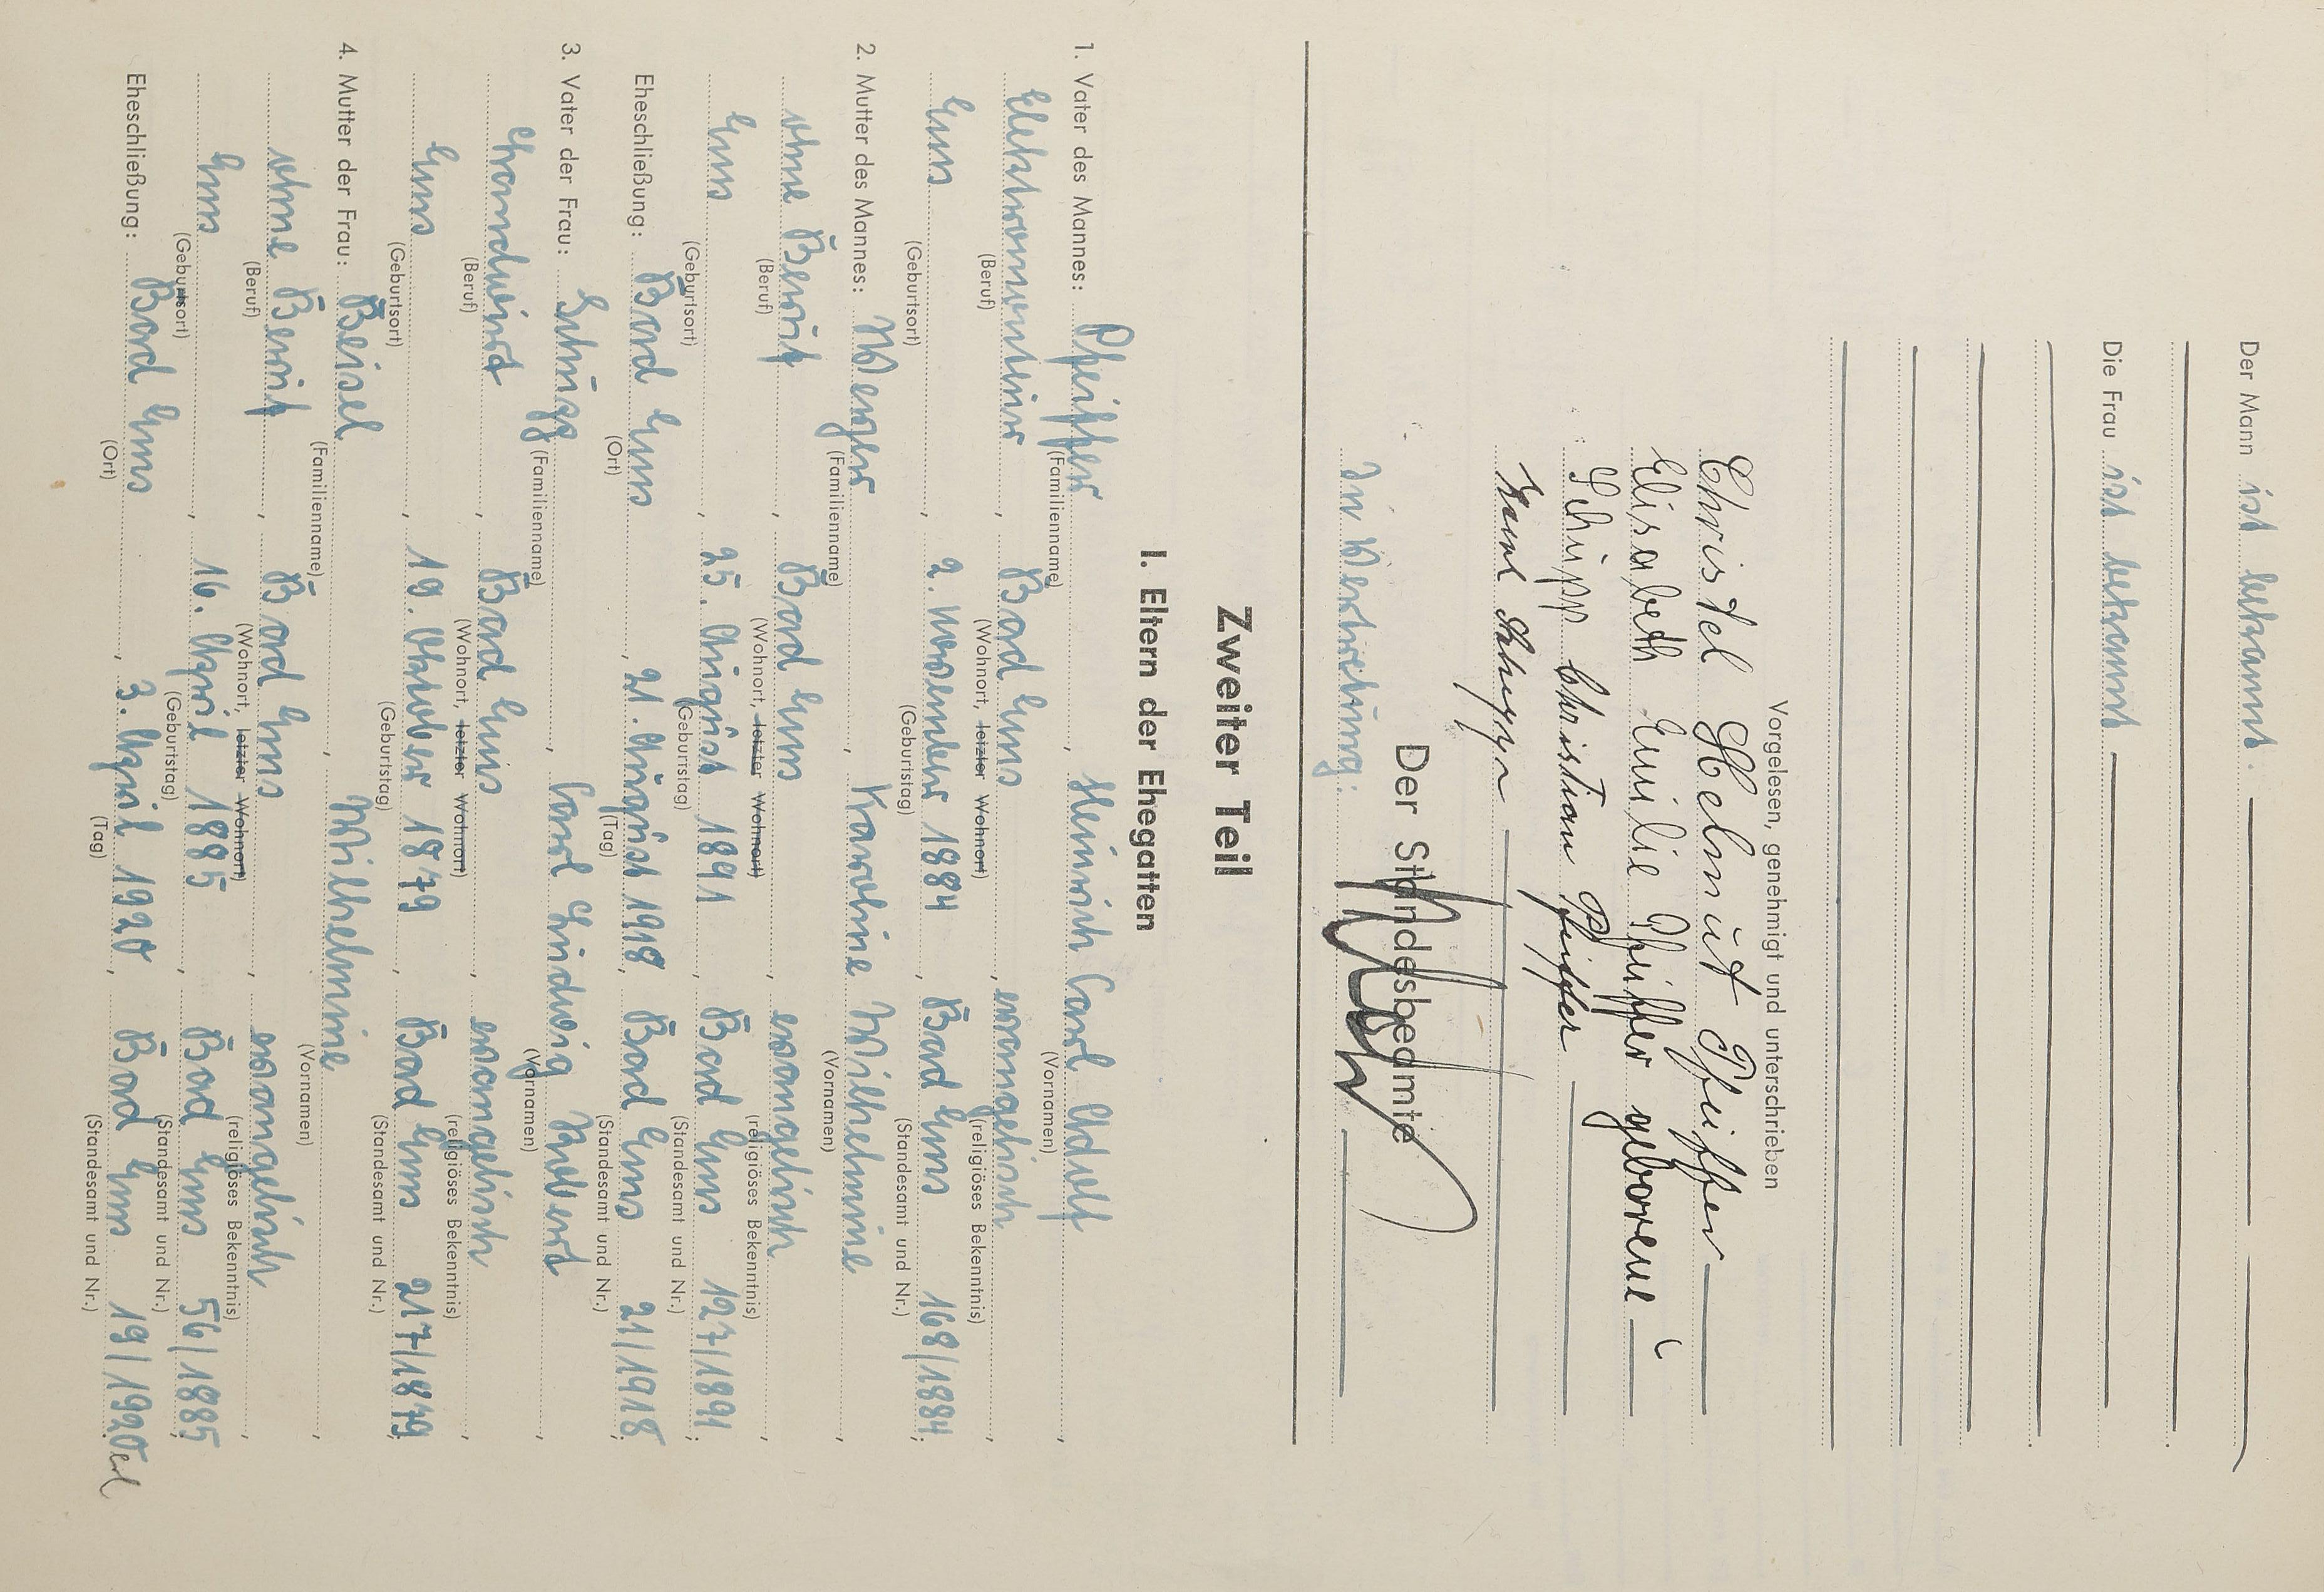 Der Mann ist bekannt.
Die Frau ist bekannt
Vorgelesen, genehmigt und unterschrieben
Christel Helmut Pfeiffer
Elisabeth Emilie Pfeiffer geborene
Schupp Christian Pfeiffer
Karl
Der Standesbeamte
In Vertretung:
Zweiter Teil
I. Eltern der Ehegatten
1. Vater des Mannes: Pfeiffer, Heinrich Carl Adolf,
(Familienname) (Vornamen)
Elektromonteur, Bad Ems, evangelisch,
(Beruf) (Wohnort, letzter Wohnort) (religiöses Bekenntnis)
Ems, 2. November 1884, Bad Ems 168/1884;
(Geburtsort) (Geburtstag) (Standesamt und Nr.)
2. Mutter des Mannes: Merger, Karoline Wilhelmine,
(Familienname) (Vornamen)
ohne Beruf, Bad Ems, evangelisch,
(Beruf) (Wohnort, letzter Wohnort) (religiöses Bekenntnis)
Ems, 25. August 1891, Bad Ems 127/1891;
(Geburtsort) (Geburtstag) (Standesamt und Nr.)
Eheschließung: Bad Ems, 21. August 1918, Bad Ems 21/1918;
(Ort) (Tag) (Standesamt und Nr.)
3. Vater der Frau: Schupp, Carl Ludwig Robert,
(Familienname) (Vornamen)
Bad Ems, evangelisch,
(Beruf) (Wohnort, letzter Wohnort) (religiöses Bekenntnis)
Ems, 19. Oktober 1879, Bad Ems 217/1879;
(Geburtsort) (Geburtstag) (Standesamt und Nr.)
4. Mutter der Frau: Beisel, Wilhelmine,
(Familienname) (Vornamen)
ohne Beruf, Bad Ems, evangelisch,
(Beruf) (Wohnort, letzter Wohnort) (religiöses Bekenntnis)
Ems, 16. April 1885, Bad Ems 56/1885;
(Geburtsort) (Geburtstag) (Standesamt und Nr.)
Eheschließung: Bad Ems, 3. April 1920, Bad Ems 19/1920
(Ort) (Tag) (Standesamt und Nr.)